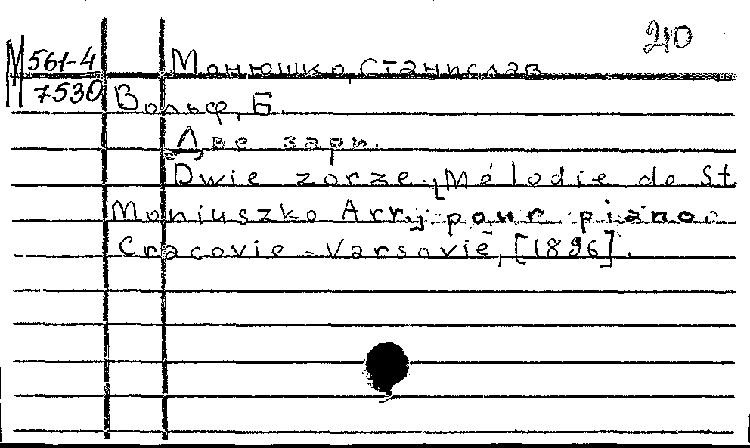 210
М 561-4
7530
Монюшко, Станислав
Вольф, Б.
Две зари.
Dwie zorze, Mélodie de St
Moniuszko Arr. pour piano.
Cracovie - Varsovie, [1896].